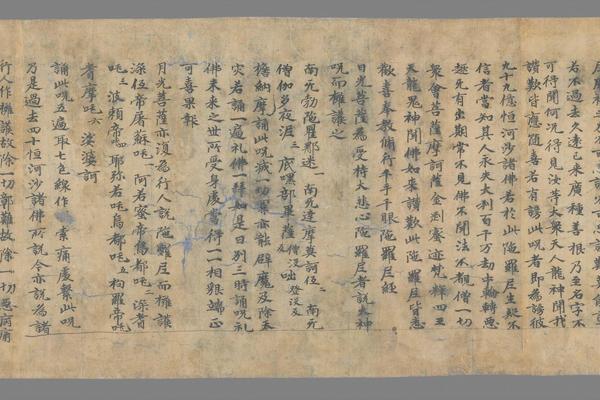 若不過去久遠已来廣種善根乃至名字不
可得聞何況得見汝等大衆天人龍神聞我
讚歎皆應隨喜若有謗此呪者即為謗彼
九十九億恒河沙諸佛若於此陁羅尼生疑不
信者當知其人永失大利百千万劫中輪轉惡
趣无有出期常不見佛不聞法不覩僧一切
衆會菩薩摩訶薩金剛密迹梵釋四王
天龍鬼神聞佛如来讚歎此陁羅尼皆悉
歡喜奉教脩行 千手千眼陁羅尼經
日光菩薩為受持大悲心陁羅尼者說大神
呪而擁護之
南无勃陁瞿那迷一 南无達摩莫訶伍二 南无
僧伽多夜泥三 底哩部畢薩僧沒咄登沒及
擔納摩誦此呪滅一切罪亦能辟魔及除天
灾若誦一遍礼佛一拜如是日別三時誦呪礼
佛未来之世所受身處當得一一相貌端正
可喜果報
月光菩薩亦復為行人說陁羅尼而擁護
深伍帝屠蘇吒一 阿若蜜帝烏都吒二 深耆
吒三 波頼帝四 耶弥若吒烏都吒五 枸羅帝吒
耆摩吒六 娑婆訶
誦此呪五遍取七色線作索痛處繫此呪
乃是過去四十恒河沙諸佛所說今亦說為諸
行人作擁護故除一切鄣難故除一切惡病痛